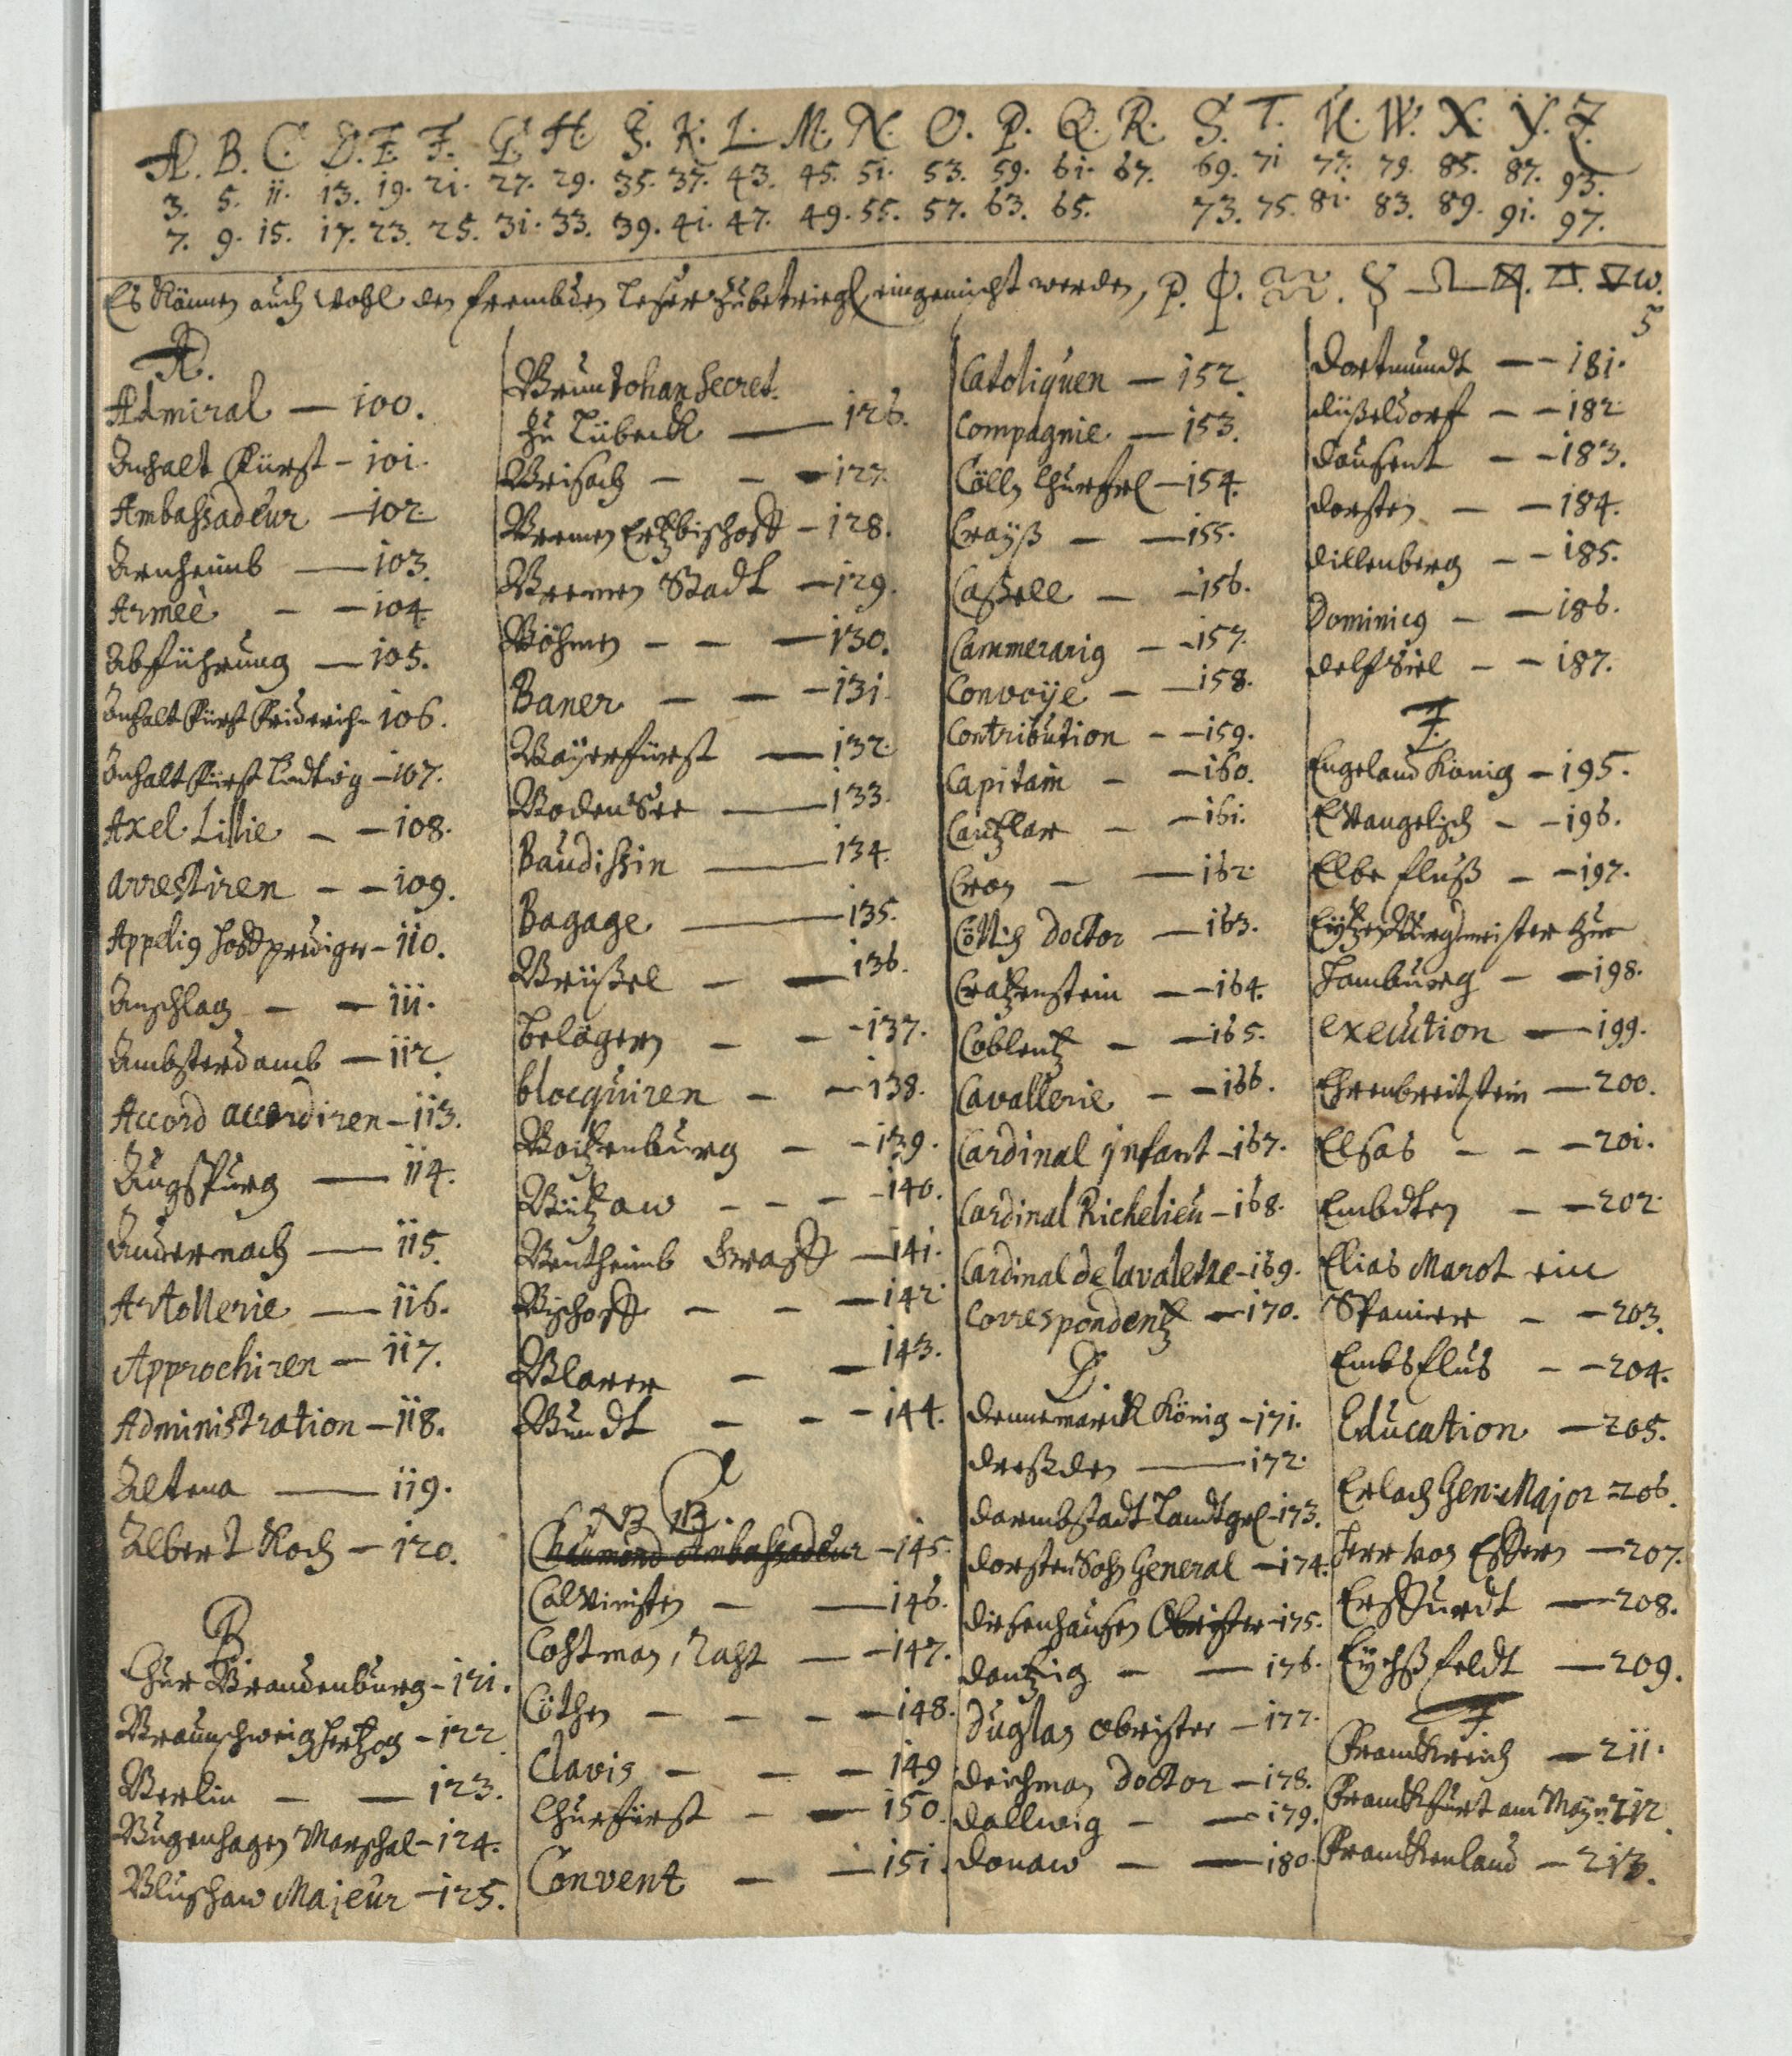 A. B. C. D. E. F. G. H. J. K. L. M. N. O. P. Q. R. S. T. U. W. X. Y. Z.
3. 5. 11. 13. 19. 21. 27. 29. 35. 37. 43. 45. 51. 53. 59. 61. 67. 69. 71 77. 79. 85. 87. 93.
7. 9. 15. 17. 23. 25. 31. 33. 39. 41. 47. 49. 55. 57. 63. 65. 73. 75. 81. 83. 89. 91. 97.
Es können auch wohl den frembden leser zubetriegen eingemischt werden,
5
A.
Admiral — 100.
Anhalt Fürst — 101.
Ambassadeur — 102.
Arnheimb — 103.
Armeè — — 104.
Abführung — 105.
Anhalt Fürst Friderich — 106.
Anhalt Fürst Ludwig — 107.
Axel Lillie — — 108.
arrestiren — — 109.
Appelig hoffprediger — 110.
Anschlag — — 111.
Ambsterdamb — 112.
Accord accordiren — 113.
Augspurg — 114.
Andernach — 115.
Artollerie — 116.
Approchiren — 117.
Administration — 118.
Altena — 119.
Albert Koch — 120.
B.
Chur Brandenburg — 121.
Braunschweig Hertzog — 122.
Berlin — — 123.
Bugenhagen Marschal — 124.
Bluschaw Majeur — 125.
Brun Johan Secret.
zu Lübeck — 126.
Brisach — — — 127.
Bremen Ertzbischoff — 128.
Bremen Stadt — 129.
Böhmen — — — 130.
Baner — — — 131.
Bayerfürst — 132.
Boden See — 133.
Baudissin — 134.
Bagage — 135.
Brüssel — — 136.
belägern — — 137.
blocquiren — — 138.
Boitzenburg — — 139.
Bützaw — — — 140.
Bentheimb Graff — 141.
Bischoff — — — 142.
Blarer — — 143.
Bundt — — — 144.
C
NB.
Chaumond Ambassadeur — 145.
Calvinisten — — 146.
Costman, Raht — — 147.
Cöthen — — — — 148.
Clavis — — — 149
Churfürst — — 150.
Convent — — 151.
Catoliquen — 152.
Compagnie — 153.
Cölln Churfrl — 154.
Crayß — — 155.
Cassell — — 156.
Cammerarig — — 157.
Convoye — — 158.
Contribution — — 159.
Capitain — — 160.
Cantzlar — — 161.
Croy — — 162.
Doctor — 163.
Cratzenstein — — 164.
Coblentz — — 165.
Cavallerie — — 166.
Cardinal Jnfant — 167.
Cardinal Richelieu — 168.
Cardinal de lavalette — 169.
Correspondentz — 170.
D.
Dennemarck König — 171.
Dreßden — 172.
Darmbstadt Landtgrl — 173.
Dorsten Sohn General — 174.
Diesenhausen Obrister — 175.
Dantzig — — 176.
Duglas Obrister — 177.
Deichman Doctor — 178.
Dallwig — — 179.
Donaw — — 180.
Dortmundt — — 181.
Düsseldorf — — 182.
Dausent — — 183.
Dorsten — — 184.
Dillenberg — — 185.
Dominicg — — 186.
Delfsiel — — 187.
E.
Engeland König — 195.
Evangelisch — — 196.
Elbe fluß — — 197.
Burgmeister zur
Hamburg — — 198.
execution — 199.
Ehrenbreitstein — 200.
Elsas — — — 201.
Embdten — — 202.
Elias Marot ein
Spanier — — 203.
Embsflus — — 204.
Education — 205.
Erlach Gen: Major — 206.
Herr von Effern — 207.
Erffurdt — 208.
Eychßfeldt — 209.
F
Franckreich — 211.
Franckfurt am Mayn — 212.
Franckenland — 213.